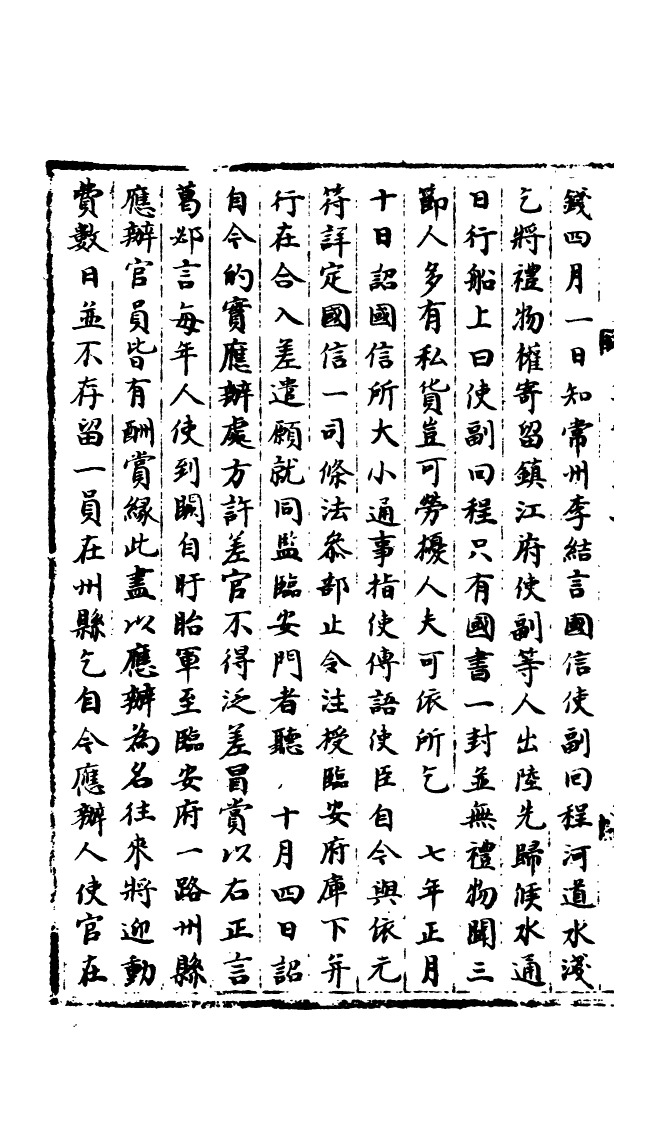 錢四月一日知常州李結言國信使副回程河道水淺
乞將禮物權寄留鎮江府使副等人出陸先歸候水通
日行船上曰使副回程只有國書一封並無禮物聞三
節人多有私貨豈可勞擾人夫可依所乞　七年正月
十日詔國信所大小通事指使傳語使臣自今與依元
符詳定國信一司條法叅部止令注授臨安府庫下并
行在合入差遣願就同監臨安門者聽　十月四日詔
自今的實應辦處方許差官不得泛差冒賞以右正言
葛邲言每年人使到闕自盱眙軍至臨安府一路州縣
應辦官員皆有酬賞緣此盡以應辦為名往來將迎動
費數日並不存留一員在州縣乞自今應辦人使官在